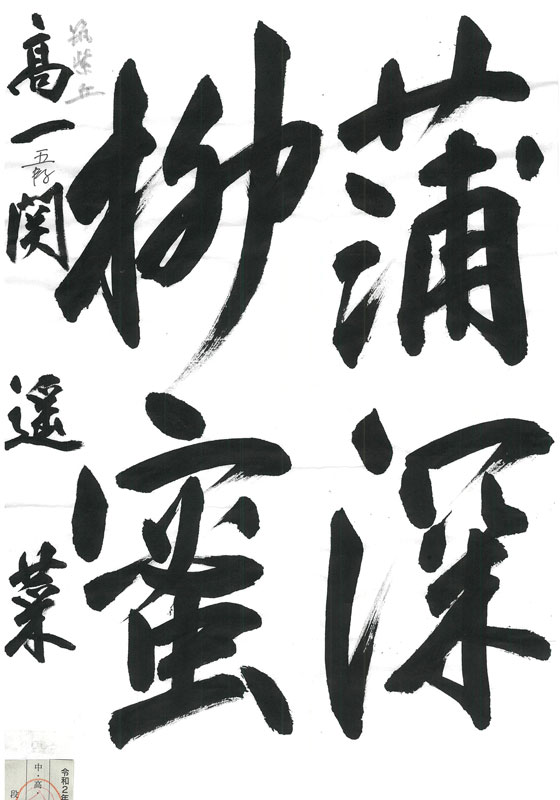 蒲深
柳蜜
高一関遥菜
筑紫丘
五段
令和2年
中・高・
段